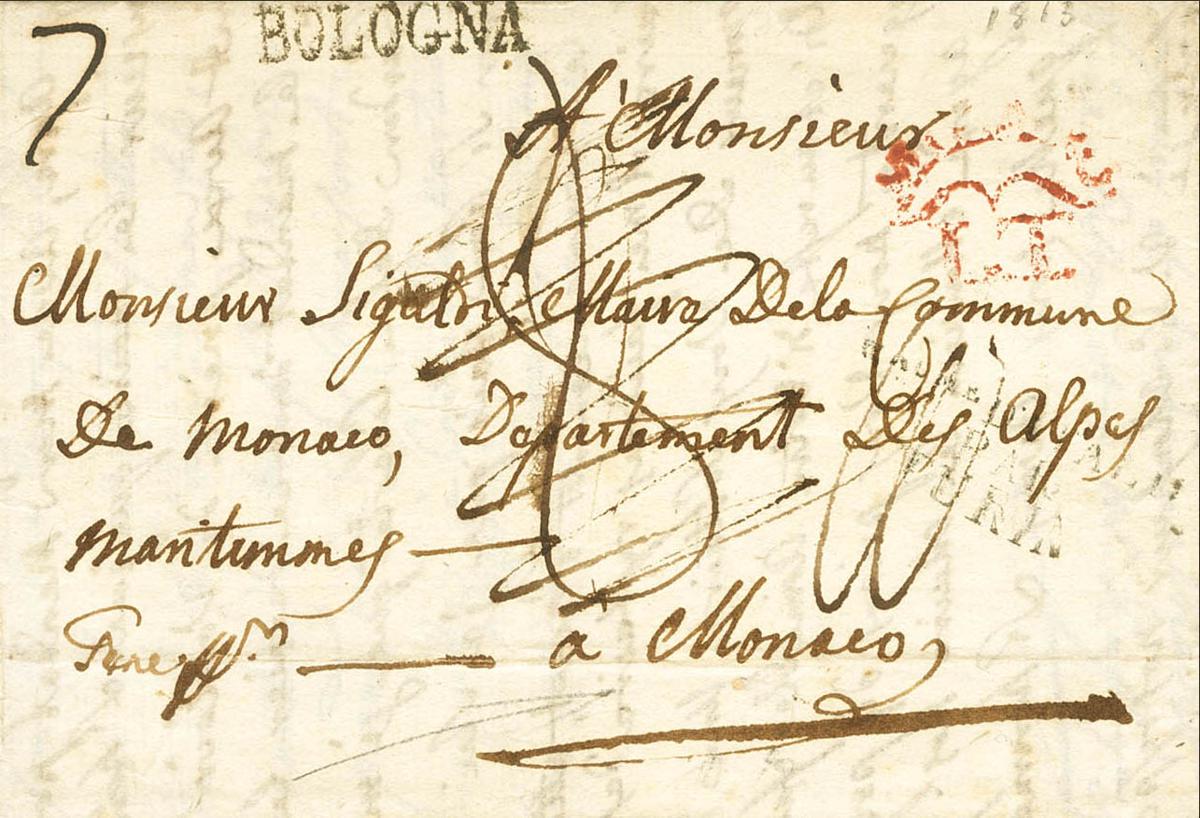 7
BOLOGNA
1813
A' Monsieur
L.I.
Monsieur Sigaldi Maire De la Commune
De Monaco, Departement Des Alpes
maritimmes
à Monaco,